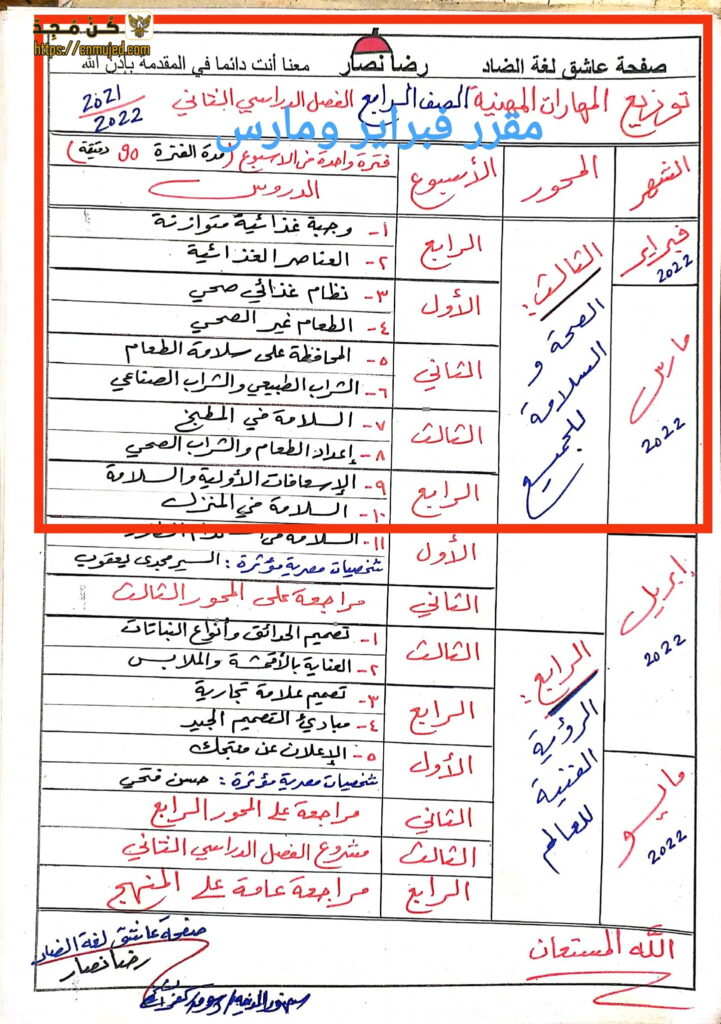 كن مُجد
https://cnmujed.com
صفحة عاشق لغة الضاد رضا نصار معنا أنت دائما في المقدمة بإذن الله
توزيع المهارات المهنية الصف الرابع الفصل الدراسي الثاني 2021 / 2022
مقرر فبراير ومارس
الشهر المحور الأسبوع فترة واحدة من الاسبوع (مدة الفترة 90 دقيقة)
الدروس
فبراير 2022
الثالث: الصحة و السلامة للجميع
الرابع
١- وجبة غذائية متوازنة
٢- العناصر الغذائية
مارس 2022
الأول
٣- نظام غذائي صحي
٤- الطعام غير الصحي
الثاني
٥- المحافظة على سلامة الطعام
٦- الشراب الطبيعي والشراب الصناعي
الثالث
٧- السلامة في المطبخ
٨- إعداد الطعام والشراب الصحي
الرابع
٩- الإسعافات الأولية والسلامة
١٠- السلامة في المنزل
إبريل 2022
الأول
١١- السلامة في
شخصيات مصرية مؤثرة: السير مجدى يعقوب
الثاني
مراجعة على المحور الثالث
الرابع: الرؤية الفنية للعالم
الثالث
١- تصميم الحدائق وأنواع النباتات
٢- العناية بالأقمشة والملابس
الرابع
٣- تصميم علامة تجارية
٤- مبادئ التصميم الجيد
مايو 2022
الأول
٥- الإعلان عن منتجك
شخصيات مصرية مؤثرة: حسن فتحي
الثاني
مراجعة على المحور الرابع
الثالث
مشروع الفصل الدراسي الثاني
الرابع
مراجعة عامة على المنهج
الله المستعان
صفحة عاشق لغة الضاد
رضا نصار